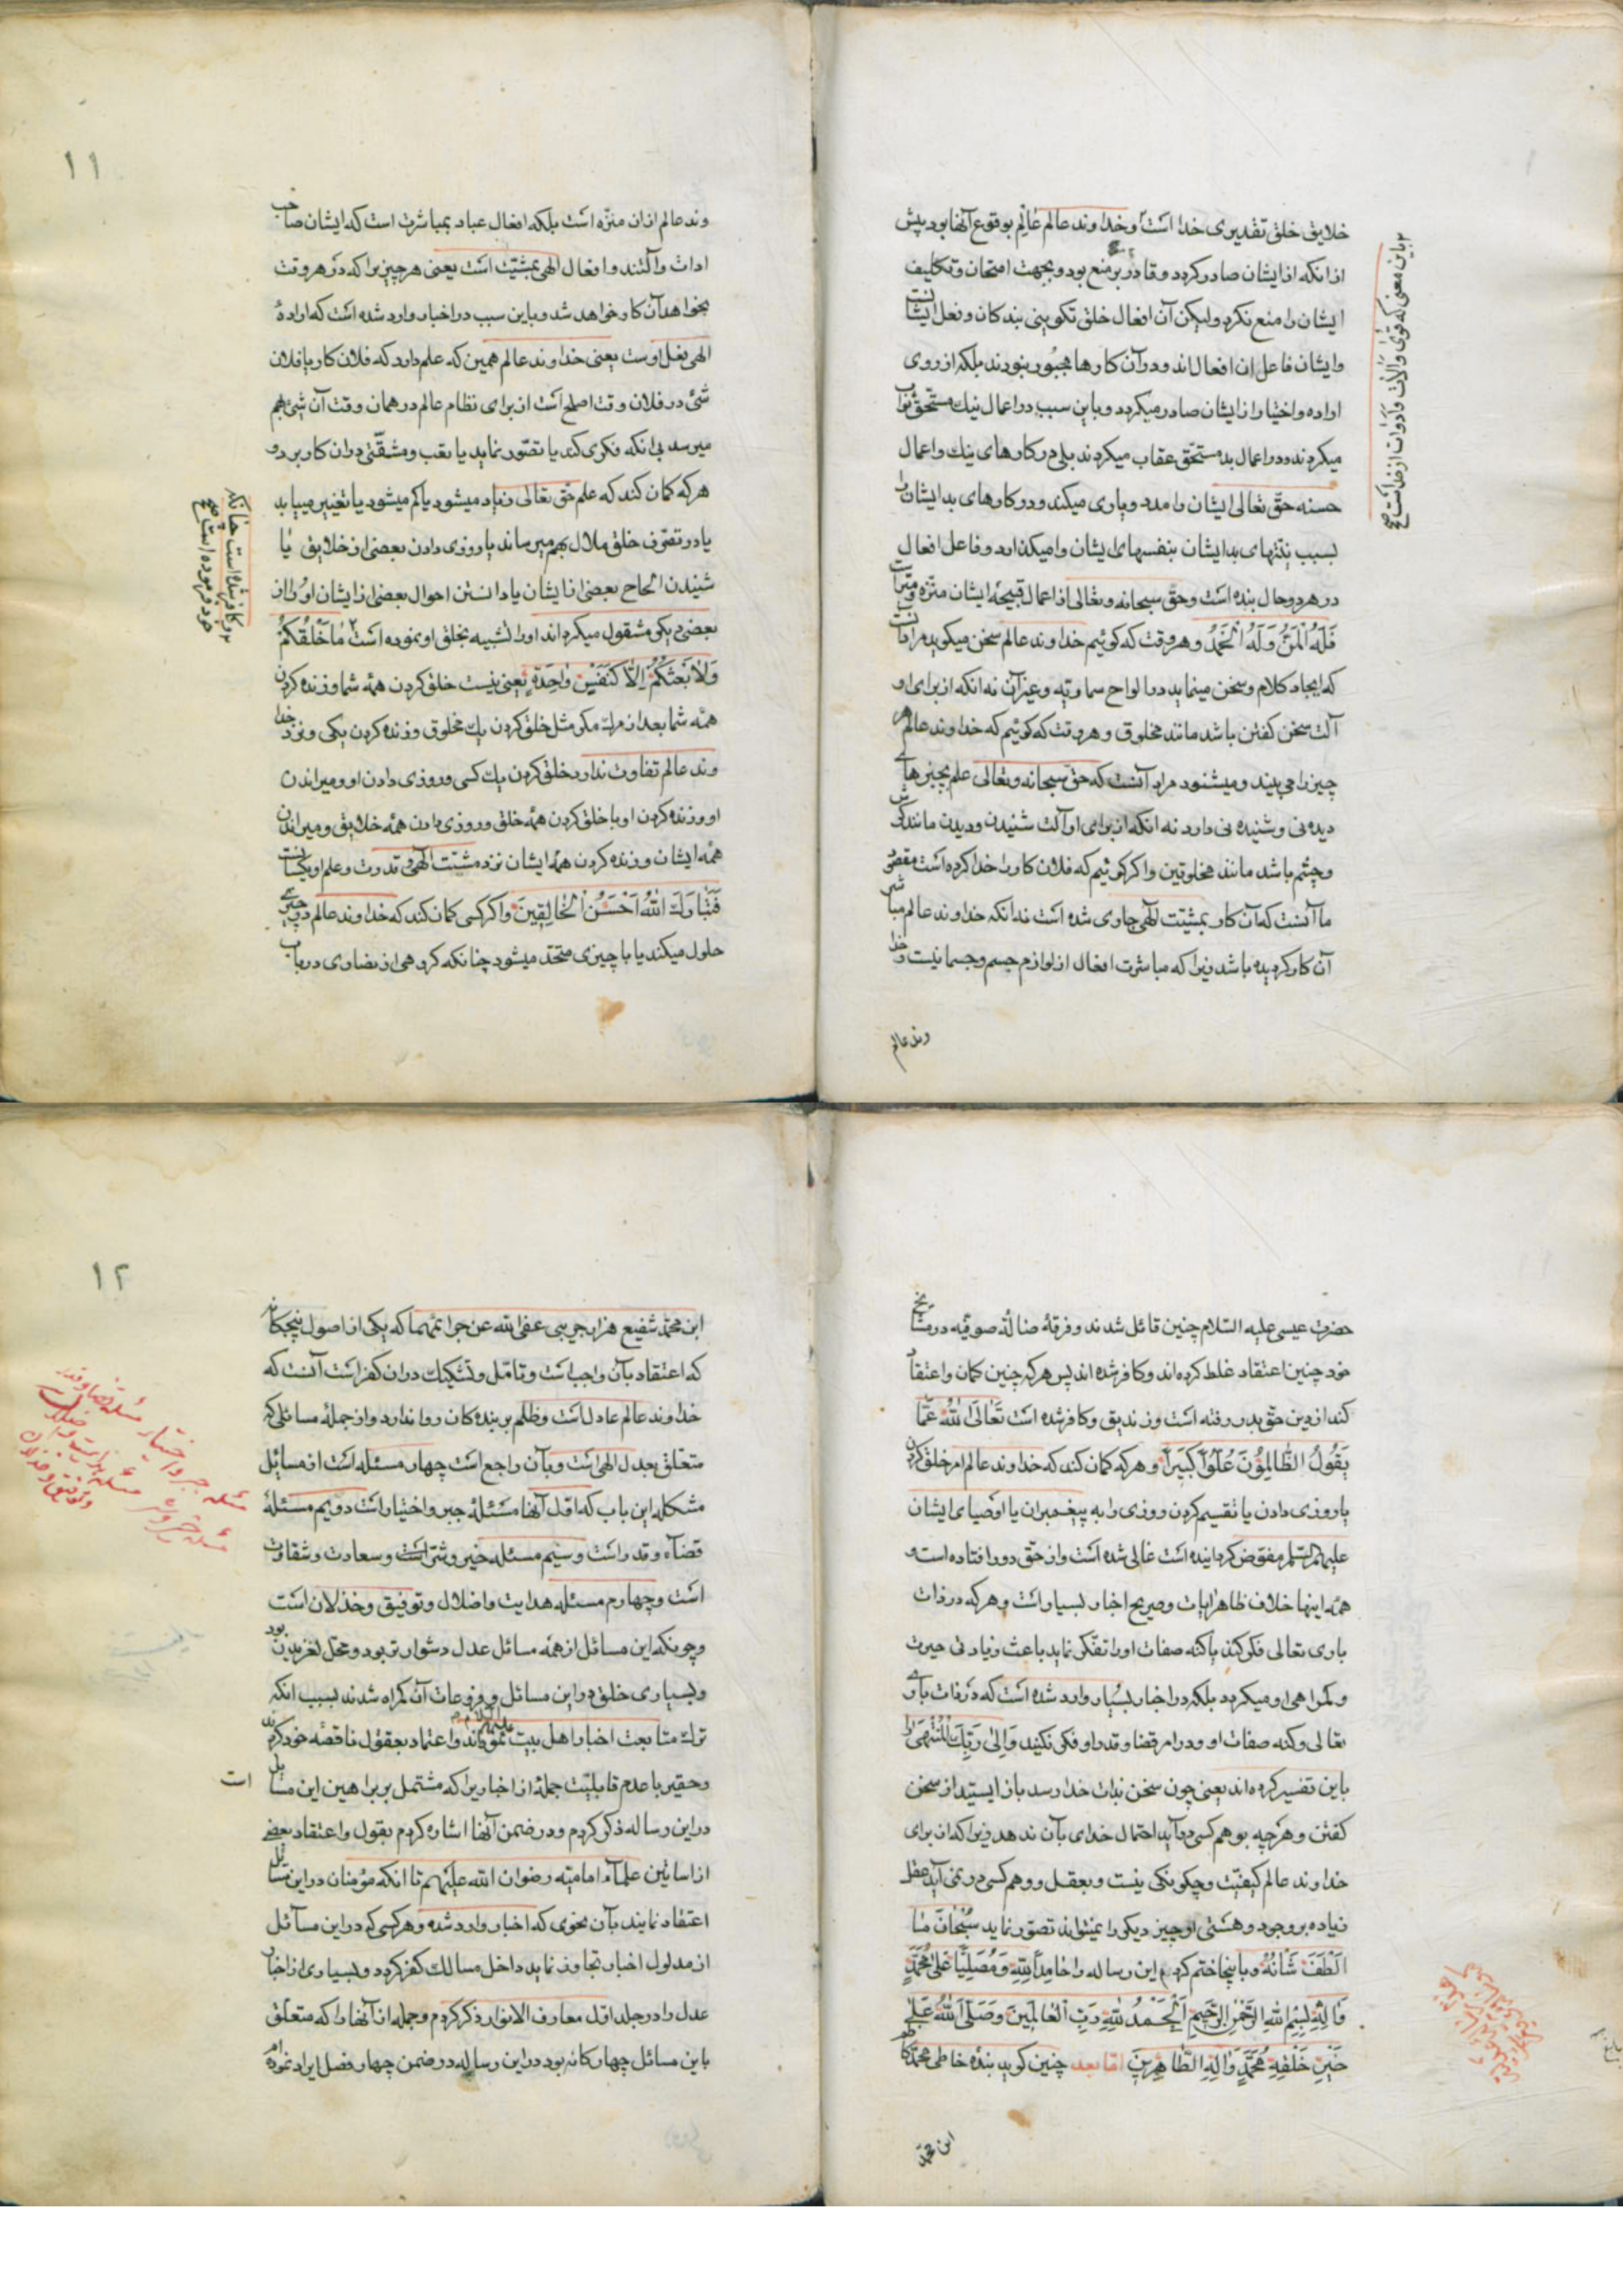 خلایق خلق تقدیری خدا است و خداوند عالم عالِم بوقوع آنها بود پیش
از انکه از ایشان صادر کردد و قادر بر منع بود و بجهت امتحان و تکلیف
ایشان را منع نکرد ولیکن آن افعال خلق تکوینی بندکان و فعل ایشانست
و ایشان فاعل ان افعال اند و در آن کارها مجبور نبودند بلکه از روی
اراده و اختیار از ایشان صادر میکردد و باین سبب در اعمال نیك مستحق ثواب
میکردند و در اعمال بد مستحق عقاب میکردند بلی در کارهای نیك و اعمال
حسنه حق تعالی ایشان را مدد و یاری میکند و در کارهای بد ایشان را
بسبب نیتهای بد ایشان بنفسهای ایشان وا میکذارد و فاعل افعال
در هر دو حال بنده است و حق سبحانه و تعالی از اعمال قبیحهٔ ایشان منزه و مبرا است
فَلَهُ الْمَنُّ وَلَهُ الْحَمْدُ و هر وقت که کوئیم خداوند عالم سخن میکوید مراد آنست
که ایجاد کلام و سخن مینماید در الواح سماویه و غیر آن نه انکه از برای او
آلت سخن کفتن باشد مانند مخلوق و هر وقت که کوئیم که خداوند عالم هر
چیز را می بیند و میشنود مراد آنست که حق سبحانه و تعالی علم بچیزهای
دیده نی و شنیده نی دارد نه انکه از برای او آلت شنیدن و دیدن مانند کوش
و چشم باشد مانند مخلوقین و اکر کوئیم که فلان کار را خدا کرده است مقصود
ما آنست که آن کار بمشیت آلهی جاری شده است نه انکه خداوند عالم مباشر
آن کار کردیده باشد زیرا که مباشرت افعال از لوازم جسم و جسمانیست و خدا
وند عالم
۲ باین معنی که قوی و آلات و ادوات از خداست صح
۱۱
وند عالم از ان منزه است بلکه افعال عباد بمباشرت است که ایشان صاحب
ادات و آلتند و افعال الهی بمشیت است یعنی هر چیز را که در هر وقت
بخواهد آن کار خواهد شد و باین سبب در اخبار وارد شده است که ارادهٔ
الهی فعل اوست یعنی خداوند عالم همین که علم دارد که فلان کار یا فلان
شئ در فلان وقت اصلح است از برای نظام عالم در همان وقت آن شئ بهم
میرسد بی انکه فکری کند یا تصور نماید یا تعب و مشقتی در ان کار برد و
هر که کمان کند که علم حق تعالی زیاد میشود یا کم میشود یا تغییر مییابد
یا در تصرف خلق ملال بهم میرساند یا روزی دادن بعضی از خلایق یا
شنیدن الحاح بعضی از ایشان یا دانستن احوال بعضی از ایشان او را از
بعضی دیکر مشغول میکرداند او را تشبیه بخلق او نموده است ۲ مَا خَلْقُكُمْ
وَلَا بَعْثُكُمْ اِلَّا كَنَفْسٍ وَاحِدَةٍ یعنی نیست خلق کردن همهٔ شما و زنده کردن
همهٔ شما بعد از مرك مکر مثل خلق کردن یك مخلوق و زنده کردن یکی و نزد خدا
وند عالم تفاوت ندارد خلق کردن یك کس و روزی دادن او و میراندن
او و زنده کردن او با خلق کردن همهٔ خلق و روزی دادن همهٔ خلایق و میراندن
همهٔ ایشان و زنده کردن همهٔ ایشان نزد مشیت الهی و قدرت و علم او یکسانست
فَتَبَارَكَ اللّٰهُ اَحْسَنُ الْخَالِقِينَ و اکر کسی کمان کند که خداوند عالم در چیزی
حلول میکند یا با چیزی متحد میشود چنانکه کروهی از نصاری در باب
۲ و کافر شده است چنانکه
خود فرموده است صح
حضرت عیسی علیه السلام چنین قائل شدند و فرقهٔ ضالهٔ صوفیه در مشایخ
خود چنین اعتقاد غلط کرده اند و کافر شده اند پس هر که چنین کمان و اعتقاد
کند از دین حق بدر رفته است و زندیق و کافر شده است تَعَالَى اللّٰهُ عَمَّا
يَقُولُ الظَّالِمُونَ عُلُوًّا كَبِيرًا و هر که کمان کند که خداوند عالم امر خلق کردن
یا روزی دادن یا تقسیم کردن روزی را به پیغمبران یا اوصیای ایشان
علیهم السلم مفوض کردانیده است غالی شده است و از حق دور افتاده است و
همهٔ اینها خلاف ظاهر آیات و صریح اخبار بسیار است و هر که در ذات
باری تعالی فکر کند یا کنه صفات او را تفکر نماید باعث زیادتی حیرت
و کمراهی او میکردد بلکه در اخبار بسیار وارد شده است که در ذات باری
تعالی و کنه صفات او و در امر قضا و قدر او فکر نکنید وَاِلىٰ رَبِّكَ الْمُنْتَهىٰ را
باین تفسیر کرده اند یعنی چون سخن بذات خدا رسد باز ایستید از سخن
کفتن و هر چه بوهم کسی در آید احتمال خدای بآن ندهد زیرا که از برای
خداوند عالم کیفیت و چکونکی نیست و بعقل و وهم کسی در نمی آید عقل
زیاده بر وجود و هستی او چیز دیکر را نمیتواند تصور نماید سُبْحَانَ مَا
اَلْطَفَ شَانُهُ و باینجا ختم کردم این رساله را حَامِدًا لِلّٰهِ وَمُصَلِّيًا عَلىٰ مُحَمَّدٍ
وَآلِهِ بِسْمِ اللّٰهِ الرَّحْمٰنِ الرَّحِيمِ اَلْحَمْدُ لِلّٰهِ رَبِّ الْعَالَمِينَ وَصَلَّى اللّٰهُ عَلىٰ
خَيْرِ خَلْقِهِ مُحَمَّدٍ وَآلِهِ الطَّاهِرِينَ اما بعد چنین کوید بندهٔ خاطی محمد کاظم
ابن محمد
۱۲
ابن محمد شفیع هزارجریبی عفی الله عن جرائمهما که یکی از اصول پنجکانه
که اعتقاد بآن واجب است و تامل و تشکیك در ان کفر است آنست که
خداوند عالم عادل است و ظلم بر بنده کان روا ندارد و از جملهٔ مسائلی که
متعلق بعدل الهی است و بآن راجع است چهار مسئله است از مسائل
مشکله این باب که اول آنها مسئلهٔ جبر و اختیار است دویم مسئلهٔ
قضاء و قدر است و سیم مسئله خیر و شر است و سعادت و شقاوت
است و چهارم مسئله هدایت و اضلال و توفیق و خذلان است
و چونکه این مسائل از همه مسائل عدل دشوارتر بود و محل لغزیدن بود
و بسیاری خلق در این مسائل و فروعات آن کمراه شدند بسبب انکه
ترك متابعت اخبار اهل بیت علیهم السلام نموده اند و اعتماد بعقول ناقصه خود کردند
و حقیر با عدم قابلیت جملهٔ از اخباریرا که مشتمل بر براهین این مسایل است
در این رساله ذکر کردم و در ضمن آنها اشاره کردم بقول و اعتقاد بعضی
از اساتین علماء امامیه رضوان الله علیهم تا انکه مؤمنان در این مسایل
اعتقاد نمایند بآن نحوی که اخبار وارد شده و هر کسی که در این مسائل
از مدلول اخبار تجاوز نماید داخل مسالك کفر کردد و بسیاری از اخبار
عدل را در جلد اول معارف الانوار ذکر کردم و جمله از آنها را که متعلق
باین مسائل چهارکانه بود در این رساله در ضمن چهار فصل ایراد نموده ام
مسئله جبر و اختیار مسئله قضا و قدر
مسئله خیر و شر مسئله هدایت و اضلال
و توفیق و خذلان